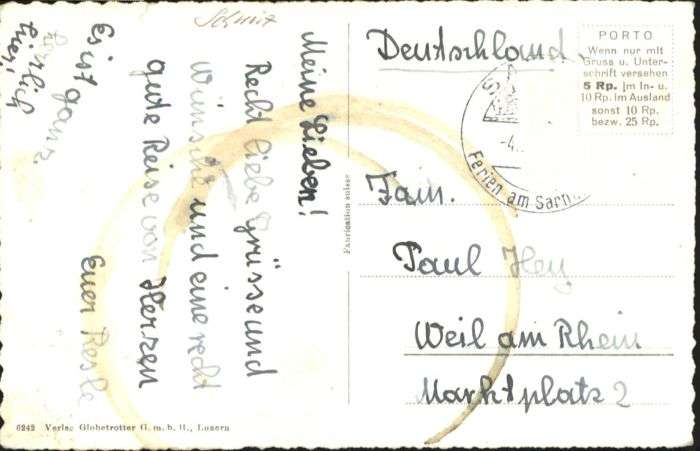 Schmit
Meine Lieben!
Recht liebe Grüsse und
Wünsche und eine recht
gute Reise von Herzen
Es ist ganz
hier!
Euer
Fabrication suisse
6242 Verlag Globetrotter G.m.b.H., Luzern
Deutschland
PORTO
Wenn nur mit
Gruss u. Unter-
schrift versehen
5 Rp. im In- u.
10 Rp. im Ausland
sonst 10 Rp.
bezw. 25 Rp.
-4.
Ferien am Sarn
Fam.
Paul Hey
Weil am Rhein
Marktplatz 2